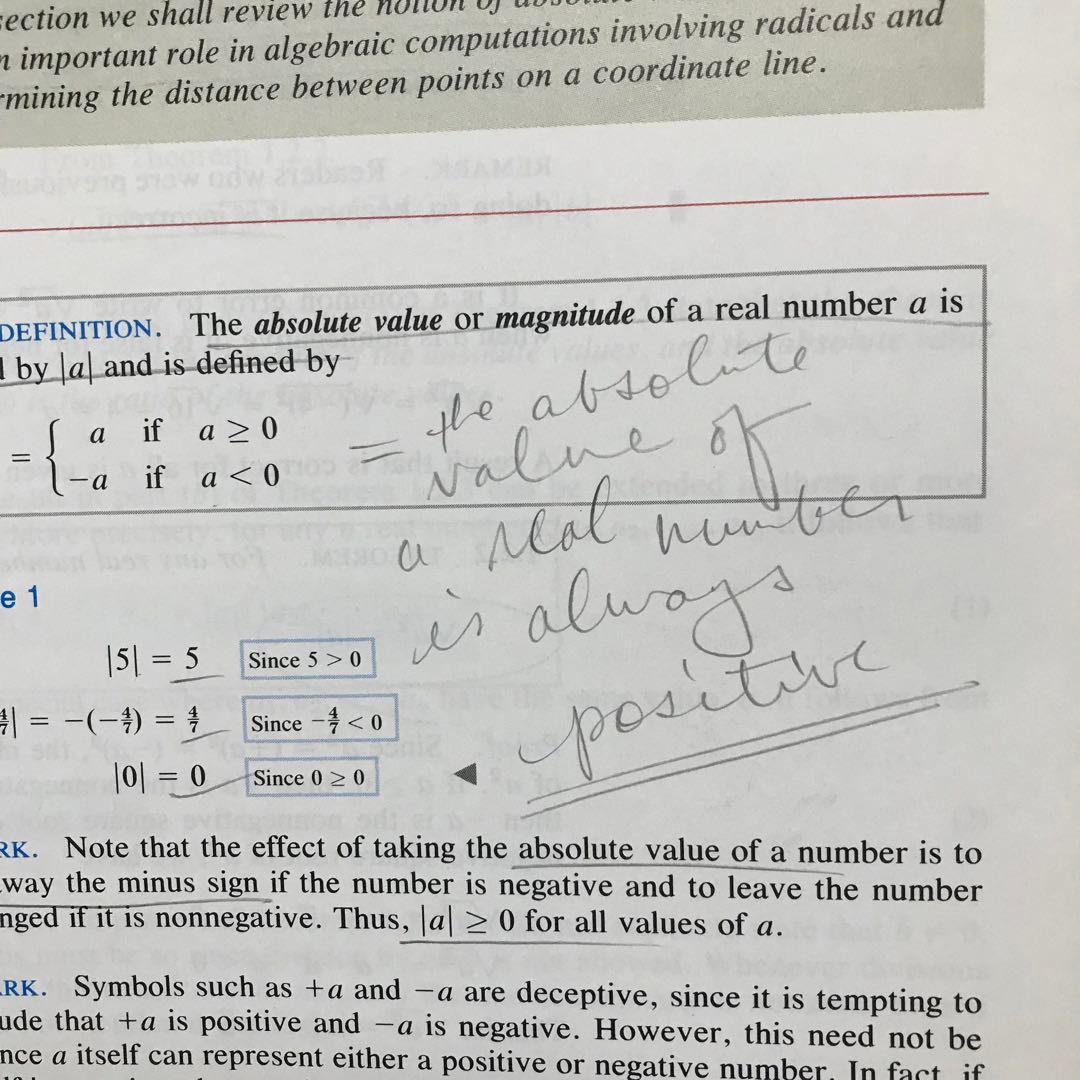 section we shall review the notion of
n important role in algebraic computations involving radicals and
rmining the distance between points on a coordinate line.
DEFINITION. The absolute value or magnitude of a real number a is
d by |a| and is defined by
= { a if a ≥ 0
-a if a < 0
= the absolute
value of
a real number
is always
positive
e 1
|5| = 5 Since 5 > 0
4/7| = -(-4/7) = 4/7 Since -4/7 < 0
|0| = 0 Since 0 ≥ 0
RK. Note that the effect of taking the absolute value of a number is to
way the minus sign if the number is negative and to leave the number
nged if it is nonnegative. Thus, |a| ≥ 0 for all values of a.
ARK. Symbols such as +a and -a are deceptive, since it is tempting to
ude that +a is positive and -a is negative. However, this need not be
nce a itself can represent either a positive or negative number. In fact, if